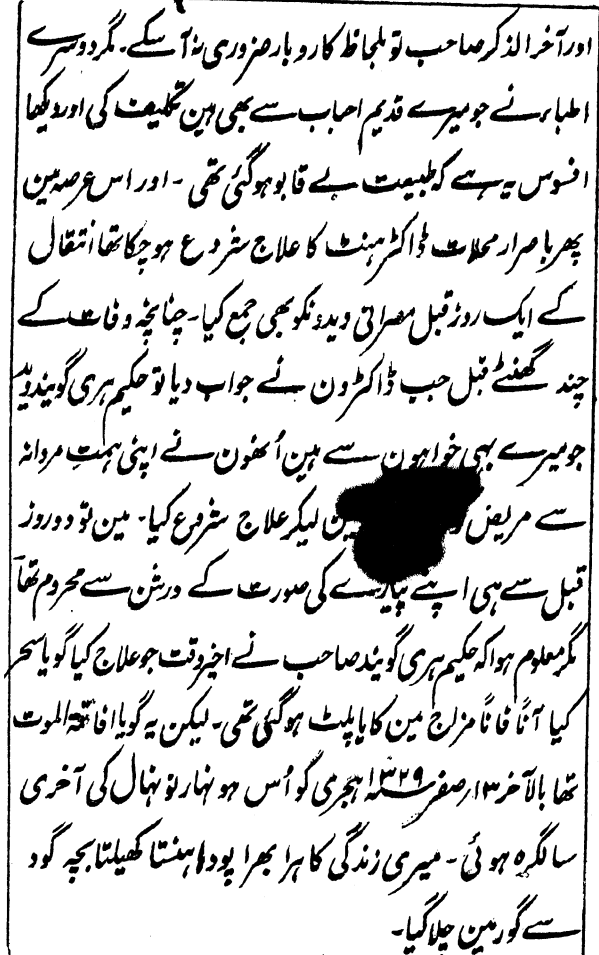 اور آخر الذکر صاحب تو بلحاظ کاروبار ضروری نہ آسکے۔ مگر دوسرے
اطباء نے جو میرے قدیم احباب سے بھی ہین تکلیف کی اور دیکھا
افسوس یہ ہے کہ طبیعت بے قابو ہوگئی تھی ۔ اور اس عرصہ مین
پھر باصرار محلات ڈاکٹر ہنٹ کا علاج شروع ہوچکا تھا انتقال
کے ایک روز قبل مصراتی ویدونکو بھی جمع کیا۔ چنانچہ وفات کے
چند گھنٹے قبل جب ڈاکٹرون نے جواب دیا تو حکیم ہری گوبیند وید
جو میرے بہی خواہون سے ہین اُنھون نے اپنی ہمت مردانہ
سے مریض لیکر علاج شروع کیا۔ مین تو دو روز
قبل سے ہی اپنے پیارے کی صورت کے درشن سے محروم تھا
مگر معلوم ہوا کہ حکیم ہری گوبند صاحب نے اخیر وقت جو علاج کیا گویا سحر
کیا آناً فاناً مزاج مین کایا پلٹ ہوگئی تھی۔ لیکن یہ گویا افاقۃ الموت
تھا بالآخر ۱۳؍ صفر ۱۳۲۹ ہجری کو اُس ہونہار نونہال کی آخری
سالگرہ ہوئی ۔ میری زندگی کا ہرا بھرا پودھا ہنستا کھیلتا بچہ گود
سے گور مین چلا گیا۔